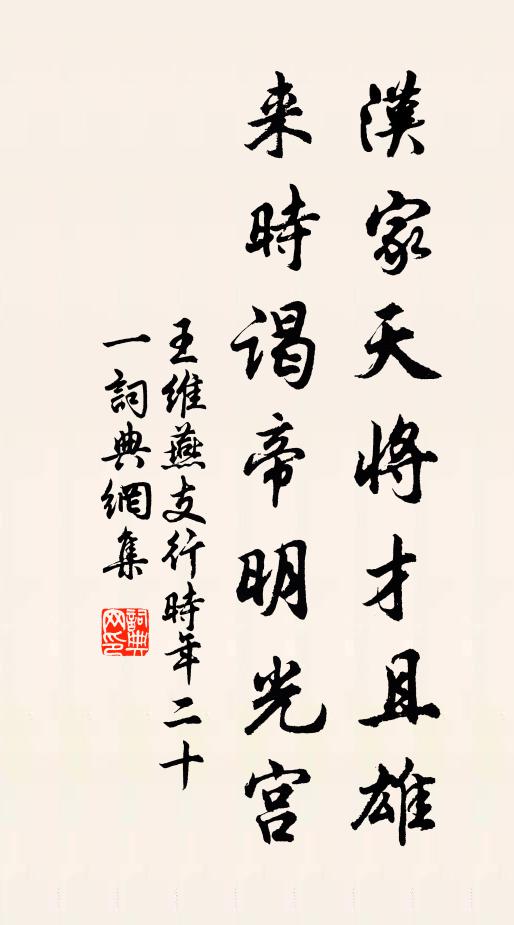 漢家天将才且雄
来時謁帝明光宫
王維燕支行時年二十
一詞典網集
詞典网印